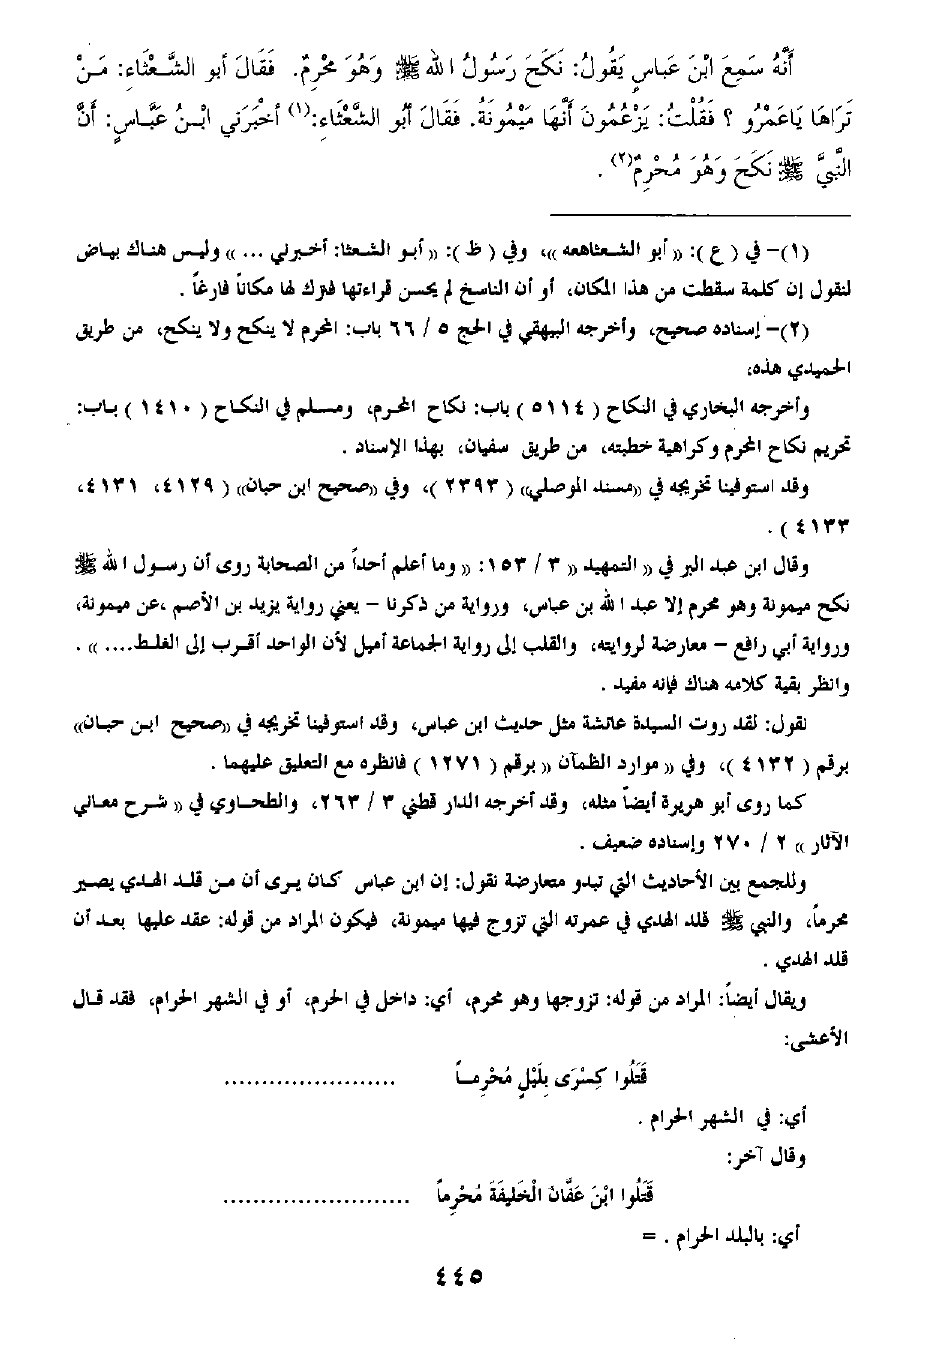 أَنَّهُ سَمِعَ ابْنَ عَبَاسٍ يَقُولُ: نَكَحَ رَسُولُ اللهِ ﷺ وَهُوَ مُحْرِمٌ. فَقَالَ أبو الشَّعْثَاءِ: مَنْ
تَرَاهَا يَاعَمْرُو ؟ فَقُلْتُ: يَزْعُمُونَ أَنَّهَا مَيْمُونَةُ. فَقَالَ أَبُو الشَّعْثَاءِ:(١) أَخْبَرَني ابْنُ عَبَّاسٍ: أَنَّ
النَّبِيَّ ﷺ نَكَحَ وَهُوَ مُحْرِمٌ(٢) .
(١)- في ( ع ): « أبو الشعثاهعه »، وفي ( ظ ): « أبو الشعثا: أخبرني ... » وليس هناك بياض
لنقول إن كلمة سقطت من هذا المكان، أو أن الناسخ لم يحسن قراءتها فترك لها مكاناً فارغاً .
(٢)- إسناده صحيح، وأخرجه البيهقي في الحج ٥ / ٦٦ باب: المحرم لا ينكح ولا ينكح، من طريق
الحميدي هذه،
وأخرجه البخاري في النكاح ( ٥١١٤ ) باب: نكاح المحرم، ومسلم في النكاح ( ١٤١٠ ) باب:
تحريم نكاح المحرم وكراهية خطبته، من طريق سفيان، بهذا الإسناد .
وقد استوفينا تخريجه في «مسند الموصلي» ( ٢٣٩٣ )، وفي «صحيح ابن حبان» ( ٤١٢٩، ٤١٣١،
٤١٣٣ ) .
وقال ابن عبد البر في « التمهيد « ٣ / ١٥٣: « وما أعلم أحداً من الصحابة روى أن رسول الله ﷺ
نكح ميمونة وهو محرم إلا عبد الله بن عباس، ورواية من ذكرنا – يعني رواية يزيد بن الأصم ،عن ميمونة،
ورواية أبي رافع – معارضة لروايته، والقلب إلى رواية الجماعة أميل لأن الواحد أقرب إلى الغلط.... » .
وانظر بقية كلامه هناك فإنه مفيد .
نقول: لقد روت السيدة عائشة مثل حديث ابن عباس، وقد استوفينا تخريجه في «صحيح ابن حبان»
برقم ( ٤١٣٢ )، وفي « موارد الظمآن « برقم ( ١٢٧١ ) فانظره مع التعليق عليهما .
كما روى أبو هريرة أيضاً مثله، وقد أخرجه الدار قطني ٣ / ٢٦٣، والطحاوي في « شرح معاني
الآثار » ٢ / ٢٧٠ وإسناده ضعيف .
وللجمع بين الأحاديث التي تبدو متعارضة نقول: إن ابن عباس كان يرى أن من قلد الهدي يصير
محرماً، والنبي ﷺ قلد الهدي في عمرته التي تزوج فيها ميمونة، فيكون المراد من قوله: عقد عليها بعد أن
قلد الهدي .
ويقال أيضاً: المراد من قوله: تزوجها وهو محرم، أي: داخل في الحرم، أو في الشهر الحرام، فقد قال
الأعشى:
قَتَلُوا كِسْرَى بِلَيْلٍ مُحْرِماً .......................
أي: في الشهر الحرام .
وقال آخر:
قَتَلُوا ابْنَ عَفَّانَ الْخَلِيفَةَ مُحْرِماً .........................
أي: بالبلد الحرام . =
٤٤٥